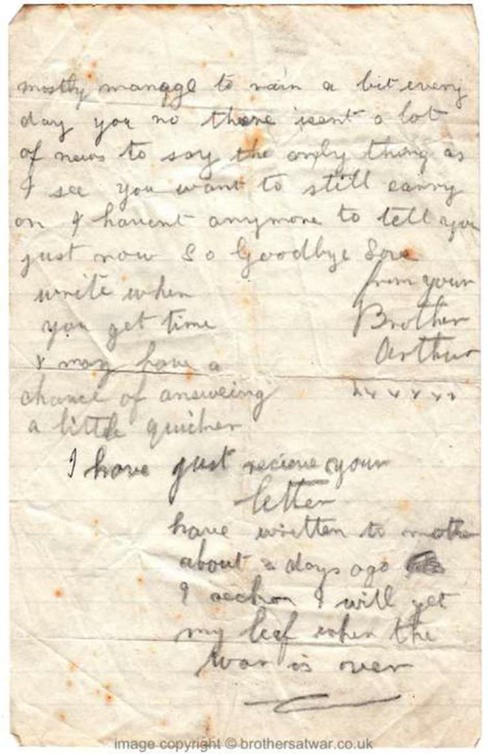 mostly manage to rain a bit every
day you no there isent a lot
of news to say the only thing as
I see you want to still carry
on I havent anymore to tell you
just now So Goodbye
from your
Brother
Arthur
write when
you get time
I may have a
chance of answeing
a little quicker
I have just recieve your
letter
have written to mother
about 2 days ago
I reckon I will get
my leef when the
war is over
image copyright © brothersatwar.co.uk